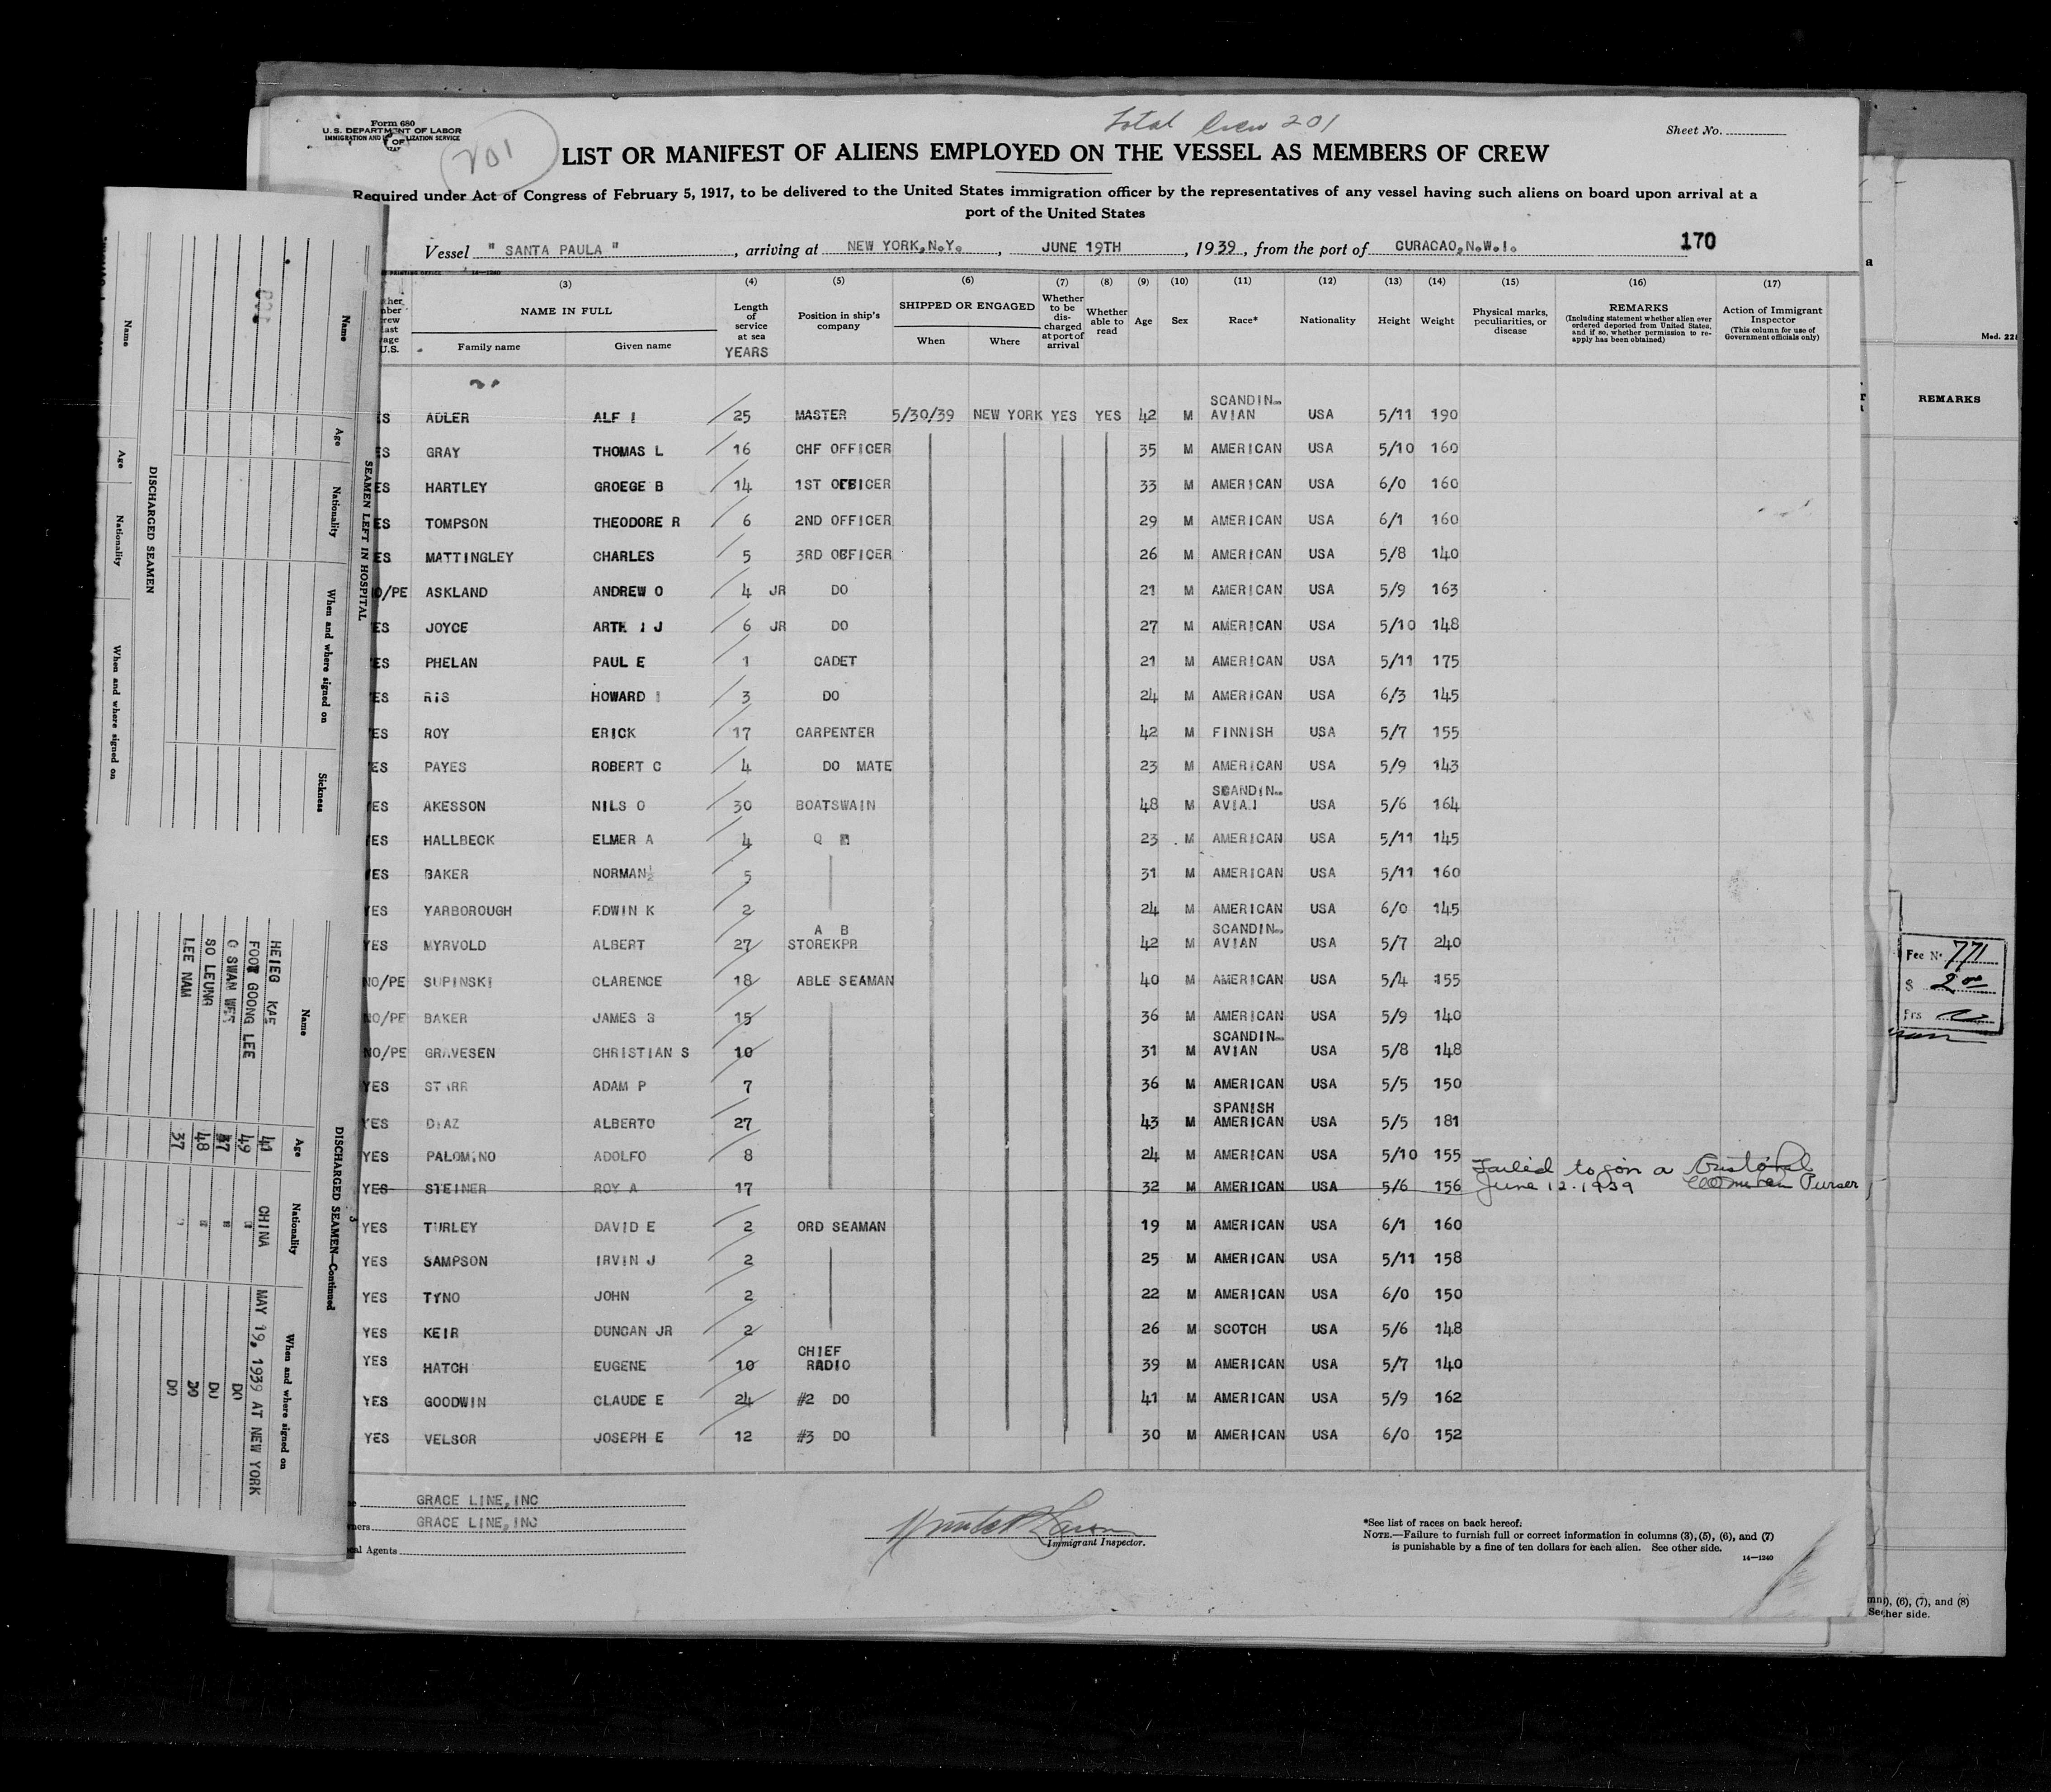 Form 680
U.S. DEPARTMENT OF LABOR
IMMIGRATION AND NATURALIZATION SERVICE
201
Total Crew 201
Sheet No.
LIST OR MANIFEST OF ALIENS EMPLOYED ON THE VESSEL AS MEMBERS OF CREW
Required under Act of Congress of February 5, 1917, to be delivered to the United States immigration officer by the representatives of any vessel having such aliens on board upon arrival at a
port of the United States
Vessel " SANTA PAULA ", arriving at NEW YORK,N.Y., JUNE 19TH, 1939, from the port of CURACAO,N.W.I. 170
14—1240
(3) (4) (5) (6) (7) (8) (9) (10) (11) (12) (13) (14) (15) (16) (17)
NAME IN FULL
Family name
Given name
Length of service at sea
YEARS
Position in ship's company
SHIPPED OR ENGAGED
When
Where
Whether to be discharged at port of arrival
Whether able to read
Age
Sex
Race*
Nationality
Height
Weight
Physical marks, peculiarities, or disease
REMARKS
(Including statement whether alien ever ordered deported from United States, and if so, whether permission to reapply has been obtained)
Action of Immigrant Inspector
(This column for use of Government officials only)
ES ADLER ALF I 25 MASTER 5/30/39 NEW YORK YES YES 42 M SCANDIN-AVIAN USA 5/11 190
ES GRAY THOMAS L 16 CHF OFFICER 35 M AMERICAN USA 5/10 160
ES HARTLEY GROEGE B 14 1ST OFFICER 33 M AMERICAN USA 6/0 160
ES TOMPSON THEODORE R 6 2ND OFFICER 29 M AMERICAN USA 6/1 160
ES MATTINGLEY CHARLES 5 3RD OFFICER 26 M AMERICAN USA 5/8 140
O/PE ASKLAND ANDREW O 4 JR DO 21 M AMERICAN USA 5/9 163
ES JOYCE J 6 JR DO 27 M AMERICAN USA 5/10 148
ES PHELAN PAUL E 1 CADET 21 M AMERICAN USA 5/11 175
ES RIS HOWARD 3 DO 24 M AMERICAN USA 6/3 145
ES ROY ERICK 17 CARPENTER 42 M FINNISH USA 5/7 155
ES PAYES ROBERT C 4 DO MATE 23 M AMERICAN USA 5/9 143
ES AKESSON NILS O 30 BOATSWAIN 48 M SCANDIN-AVIAN USA 5/6 164
ES HALLBECK ELMER A 4 Q M 23 M AMERICAN USA 5/11 145
ES BAKER NORMAN 5 31 M AMERICAN USA 5/11 160
YES YARBOROUGH EDWIN K 2 24 M AMERICAN USA 6/0 145
YES MYRVOLD ALBERT 27 A B STOREKPR 42 M SCANDIN-AVIAN USA 5/7 240
NO/PE SUPINSKI CLARENCE 18 ABLE SEAMAN 40 M AMERICAN USA 5/4 155
NO/PE BAKER JAMES S 15 36 M AMERICAN USA 5/9 140
NO/PE GRAVESEN CHRISTIAN S 10 31 M SCANDIN-AVIAN USA 5/8 148
YES STARR ADAM P 7 36 M AMERICAN USA 5/5 150
YES DIAZ ALBERTO 27 43 M SPANISH AMERICAN USA 5/5 181
YES PALOMINO ADOLFO 8 24 M AMERICAN USA 5/10 155
YES STEINER ROY A 17 32 M AMERICAN USA 5/6 156 Failed to join a Cristobal
June 12-1939 Purser
YES TURLEY DAVID E 2 ORD SEAMAN 19 M AMERICAN USA 6/1 160
YES SAMPSON IRVIN J 2 25 M AMERICAN USA 5/11 158
YES TYNO JOHN 2 22 M AMERICAN USA 6/0 150
YES KEIR DUNCAN JR 2 26 M SCOTCH USA 5/6 148
YES HATCH EUGENE 10 CHIEF RADIO 39 M AMERICAN USA 5/7 140
YES GOODWIN CLAUDE E 24 #2 DO 41 M AMERICAN USA 5/9 162
YES VELSOR JOSEPH E 12 #3 DO 30 M AMERICAN USA 6/0 152
GRACE LINE,INC
GRACE LINE,INC
Agents
Immigrant Inspector.
*See list of races on back hereof.
NOTE.—Failure to furnish full or correct information in columns (3), (5), (6), and (7)
is punishable by a fine of ten dollars for each alien. See other side.
14—1240
SEAMEN LEFT IN HOSPITAL
Name Age Nationality When and where signed on Sickness
DISCHARGED SEAMEN
Name Age Nationality When and where signed on
DISCHARGED SEAMEN—Continued
Name Age Nationality When and where signed on
HEIEG KAE 41 CHINA MAY 19, 1939 AT NEW YORK
FOOT GOONG LEE 49 " DO
G SWAN WEE 37 " DO
SO LEUNG 48 " DO
LEE NAM 37 " DO
Med. 228
REMARKS
Fee No. 771
$ 2.00
Prs
(6), (7), and (8)
her side.